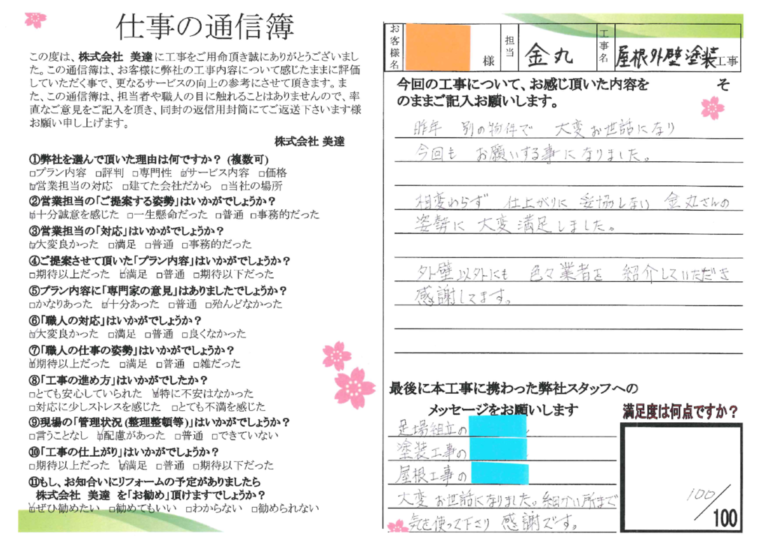 仕事の通信簿
この度は、株式会社 美達に工事をご用命頂き誠にありがとうございまし
た。この通信簿は、お客様に弊社の工事内容について感じたままに評価
していただく事で、更なるサービスの向上の参考にさせて頂きます。ま
た、この通信簿は、担当者や職人の目に触れることはありませんので、率
直なご意見をご記入を頂き、同封の返信用封筒にてご返送下さいます様
お願い申し上げます。
株式会社 美達
①弊社を選んで頂いた理由は何ですか？ (複数可)
□プラン内容 □評判 □専門性 ☑サービス内容 □価格
☑営業担当の対応 □建てた会社だから □当社の場所
②営業担当の「ご提案する姿勢」はいかがでしょうか？
☑十分誠意を感じた □一生懸命だった □普通 □事務的だった
③営業担当の「対応」はいかがでしょうか？
☑大変良かった □満足 □普通 □事務的だった
④ご提案させて頂いた「プラン内容」はいかがでしょうか？
□期待以上だった ☑満足 □普通 □期待以下だった
⑤プラン内容に「専門家の意見」はありましたでしょうか？
□かなりあった ☑十分あった □普通 □殆んどなかった
⑥「職人の対応」はいかがでしょうか？
☑大変良かった □満足 □普通 □良くなかった
⑦「職人の仕事の姿勢」はいかがでしょうか？
☑期待以上だった □満足 □普通 □雑だった
⑧「工事の進め方」はいかがでしたか？
□とても安心していられた ☑特に不安はなかった
□対応に少しストレスを感じた □とても不満を感じた
⑨現場の「管理状況(整理整頓等)」はいかがでしょうか？
□言うことなし ☑配慮があった □普通 □できていない
⑩「工事の仕上がり」はいかがでしょうか？
□期待以上だった ☑満足 □普通 □期待以下だった
⑪もし、お知合いにリフォームの予定がありましたら
株式会社 美達 を「お勧め」頂けますでしょうか？
☑ぜひ勧めたい □勧めてもいい □わからない □勧められない
お客様名 様 担当 金丸 工事名 屋根外壁塗装工事
今回の工事について、お感じ頂いた内容を そ
のままご記入お願いします。
昨年 別の物件で 大変お世話になり
今回も お願いする事になりました。
相変わらず 仕上がりに 妥協しない 金丸さんの
姿勢に 大変満足しました。
外壁以外にも 色々業者を 紹介していただき
感謝してます。
最後に本工事に携わった弊社スタッフへの
メッセージをお願いします
足場組立の
塗装工事の
屋根工事の
大変お世話になりました。細かい所まで
気を使って下さり 感謝です。
満足度は何点ですか？
100/100